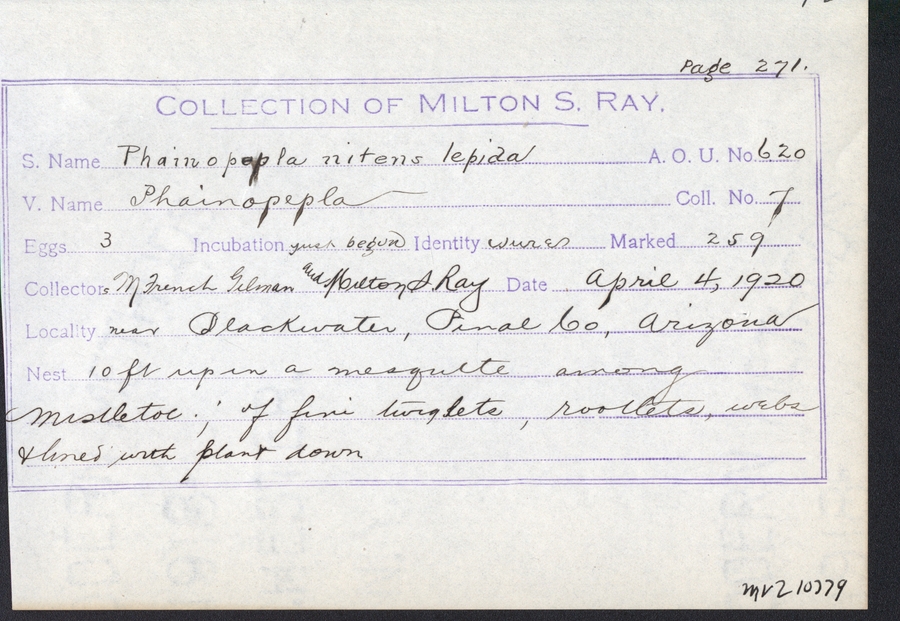 Page 271.
COLLECTION OF MILTON S. RAY.
S. Name Phainopepla nitens lepida A. O. U. No. 620
V. Name Phainopepla Coll. No. 7
Eggs 3 Incubation just begun Identity sures Marked 259
Collectors M French Gilman and Milton S. Ray Date April 4, 1920
Locality near Blackwater, Pinal Co, Arizona
Nest 10 ft up in a mesquite among
mistletoe; of fine twiglets, rootlets, webs
& lined with plant down
MVZ 10779